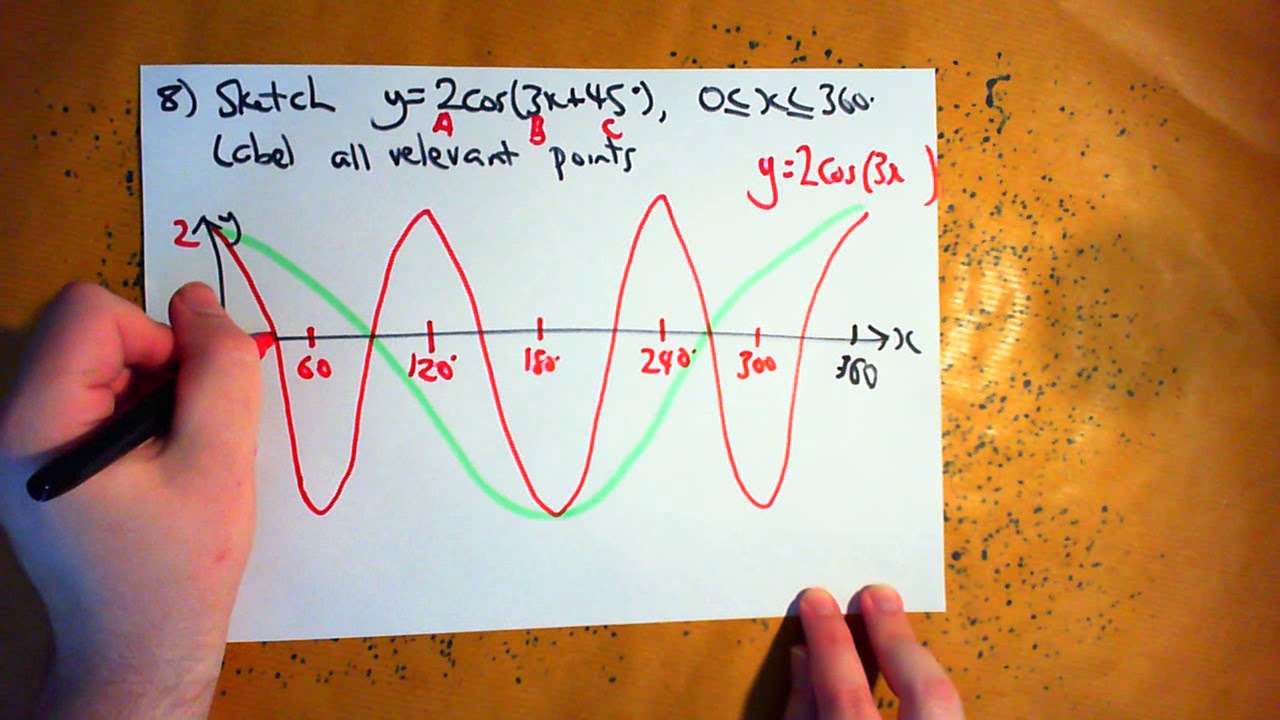 8) Sketch y=2cos(3x+45°), 0≤x≤360°
A B C
Label all relevant points
y=2cos(3x )
2 y
x
60 120° 180° 240° 300 360